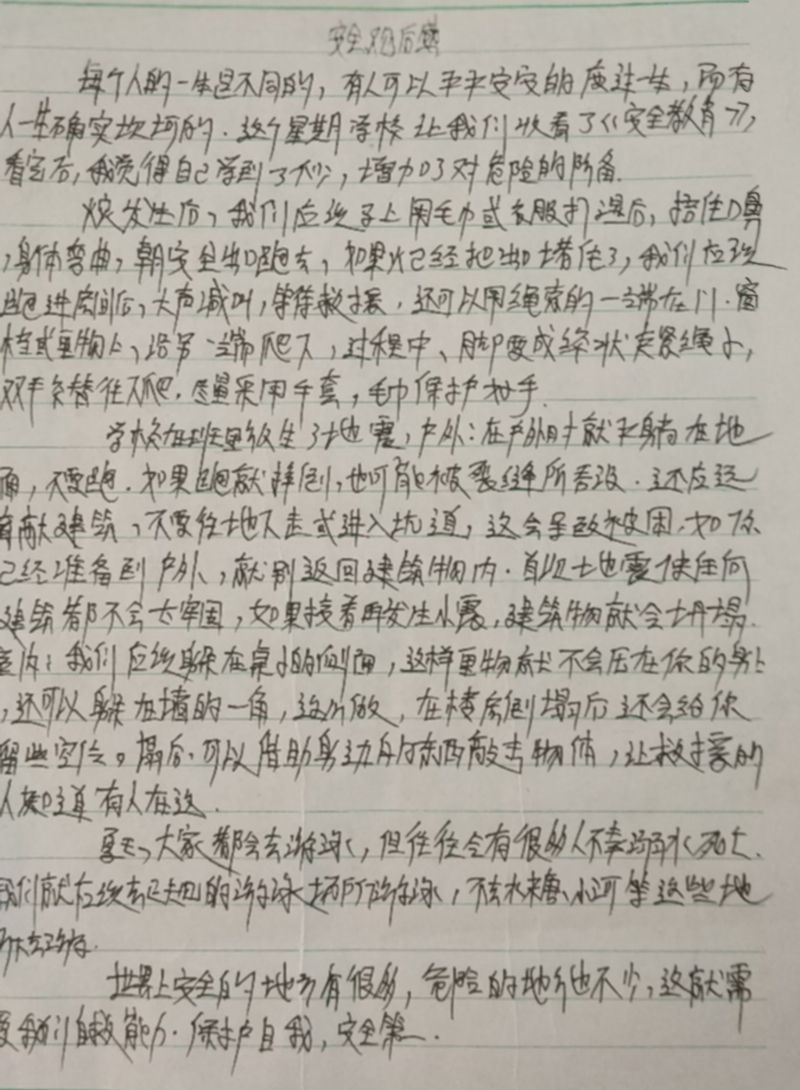 安全观后感
每个人的一生是不同的，有人可以平平安安的度过一生，而有
人一生确实坎坷的．这个星期学校让我们收看了《安全教育》，
看完后，我觉得自己学到了不少，增加了对危险的防备．
发生后，我们应该马上用毛巾或衣服打湿后，捂住口鼻
，身体弯曲，朝安全出口跑去，如果火已经把出口堵住了，我们应该
跑进房间后，大声喊叫，等待救援．还可以用绳索的一端在门．窗
或重物上，沿另一端爬下，过程中、脚要成绞状夹紧绳子，
双手交替往下爬．尽量采用手套，毛巾保护好手．
学校在班里发生了地震，户外：在户外时就平躺在地
面，不要跑．如果跑就摔倒，也可能被裂缝所吞没．还应远
建筑，不要往地下走或进入坑道，这会导致被困．如你
已经准备到户外，就别返回建筑物内．首次大地震使任何
建筑都不会太牢固，如果接着再发生小震，建筑物就会坍塌．
室内：我们应该躲在桌子的侧面，这样重物就不会压在你的身上
，还可以躲在墙的一角，这么做，在楼房倒塌后还会给你
留些空位。最后．可以借助身边的东西敲击物体，让救援的
人知道有人在这．
夏天，大家都会去游泳，但往往会有很多人不幸溺水死亡．
我们就应该去正规的游泳场所游泳，不去水塘、小河等这些地
方去游．
世界上安全的地方有很多，危险的地方也不少，这就需
要我们自救能力．保护自我，安全第一．